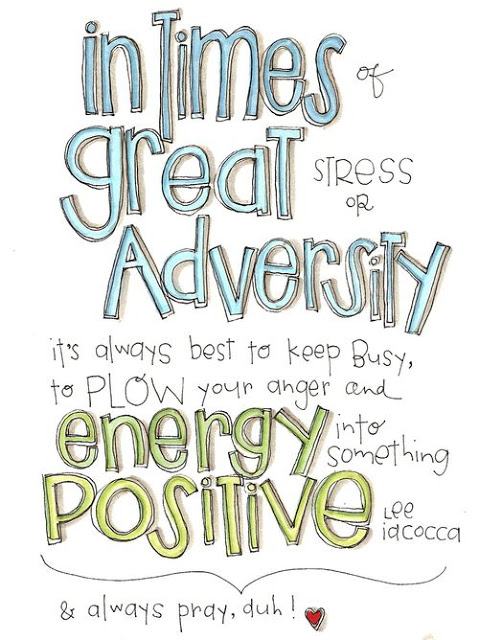 in Times of
great STRESS
OR
Adversity
it's always best to keep Busy,
to PLOW your anger and
energy into
something
POSITIVE Lee
iacocca
& always pray, duh!